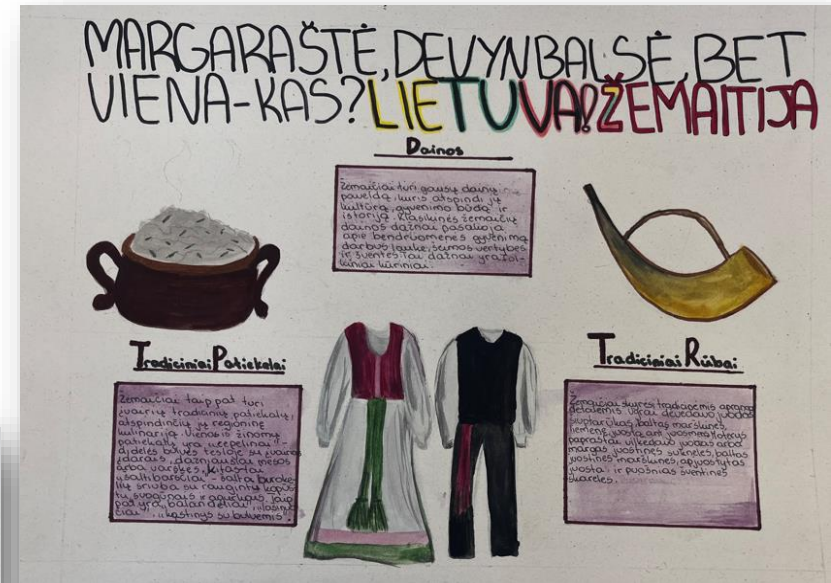 MARGARAŠTĖ, DEVYNBALSĖ, BET
VIENA-KAS? LIETUVA! ŽEMAITIJA
Dainos
Žemaičiai turi gausų dainų
paveldą, kuris atspindi jų
kultūrą, gyvenimo būdą ir
istoriją. Klasikinės žemaičių
dainos dažnai pasakoja
apie bendruomenės gyvenimą
darbus lauke, šeimos vertybes
ir šventes. Tai dažnai yra fol-
kliniai kūriniai.
Tradiciniai Patiekalai
Žemaičiai taip pat turi
įvairių tradicinių patiekalų,
atspindinčių jų regioninę
kulinariją. Vienas iš žinomų
patiekalų yra "cepelinai" -
didelės bulvės tešloje su įvairiais
įdarais, dažniausiai mėsos
arba varškės, "kastinis"
"šaltibarsčiai" - šalta burokė-
lių sriuba su raugintų kopūs-
tų svogūnais ir agurkais. Taip
pat yra "balandėliai",
"kastinys su bulvėmis".
Tradiciniai Rūbai
Žemaičiai skyrėsi tradicinėmis aprangos
detalėmis. Vyrai dėvėdavo juodas
baltas marškinius,
liemenę, juostą ant juosmens. Moterys
paprastai vilkėdavo juodas arba
margas juostines sukneles, baltas
juostines marškines, apjuostytas
juosta ir puošnias šventines
skareles.